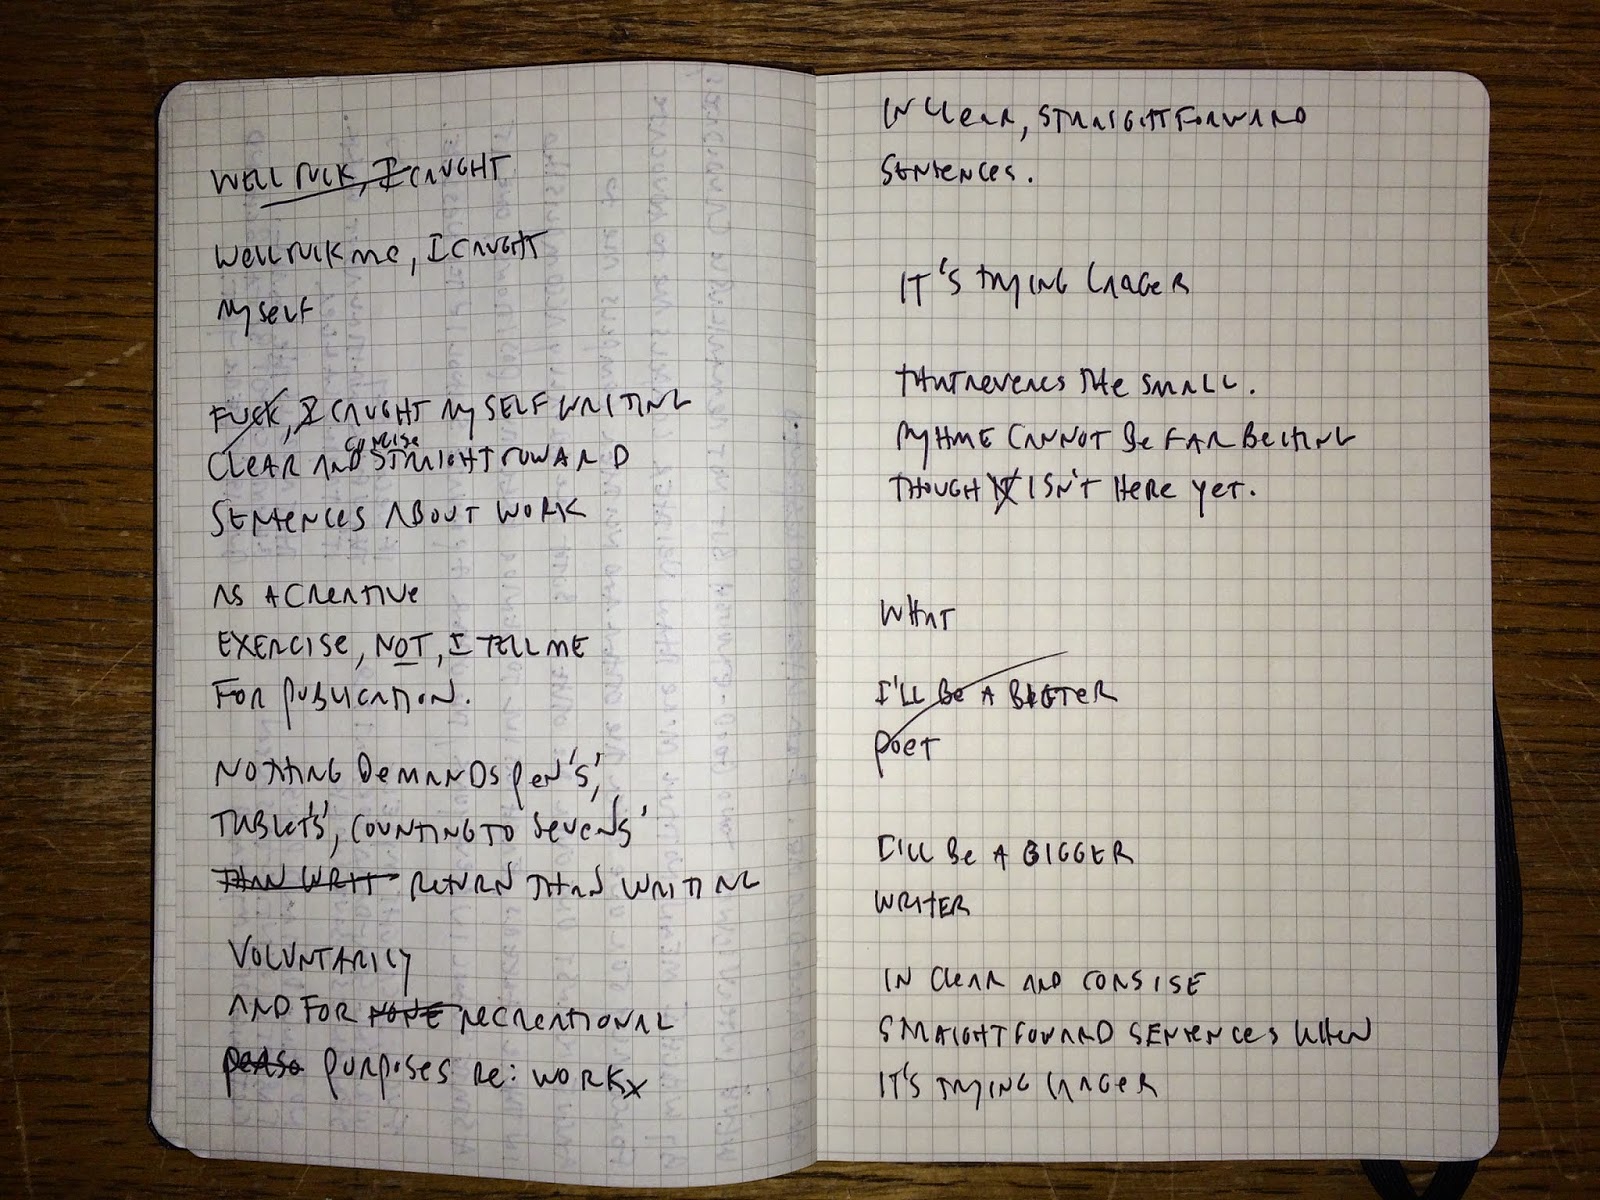 WELL FUCK, I CAUGHT
WELL FUCK ME, I CAUGHT
MYSELF
FUCK, I CAUGHT MYSELF WRITING
CONSISE
CLEAR AND STRAIGHTFOWARD
SENTENCES ABOUT WORK
AS A CREATIVE
EXERCISE, NOT, I TELL ME
FOR PUBLICATION.
NOTHING DEMANDS PEN'S',
TABLET'S', COUNTING TO SEVENS'
THAN WRIT RETURN THAN WRITING
VOLUNTARILY
AND FOR NONE RECREATIONAL
PURPOSES RE: WORK
IN CLEAR, STRAIGHTFORWARD
SENTENCES.
IT'S TRYING LARGER
THAT REVERES THE SMALL.
RHYME CANNOT BE FAR BEHIND
THOUGH IT ISN'T HERE YET.
WHAT
I'LL BE A BIGGER
POET
I'LL BE A BIGGER
WRITER
IN CLEAR AND CONSISE
STRAIGHTFOWARD SENTENCES WHEN
IT'S TRYING LARGER